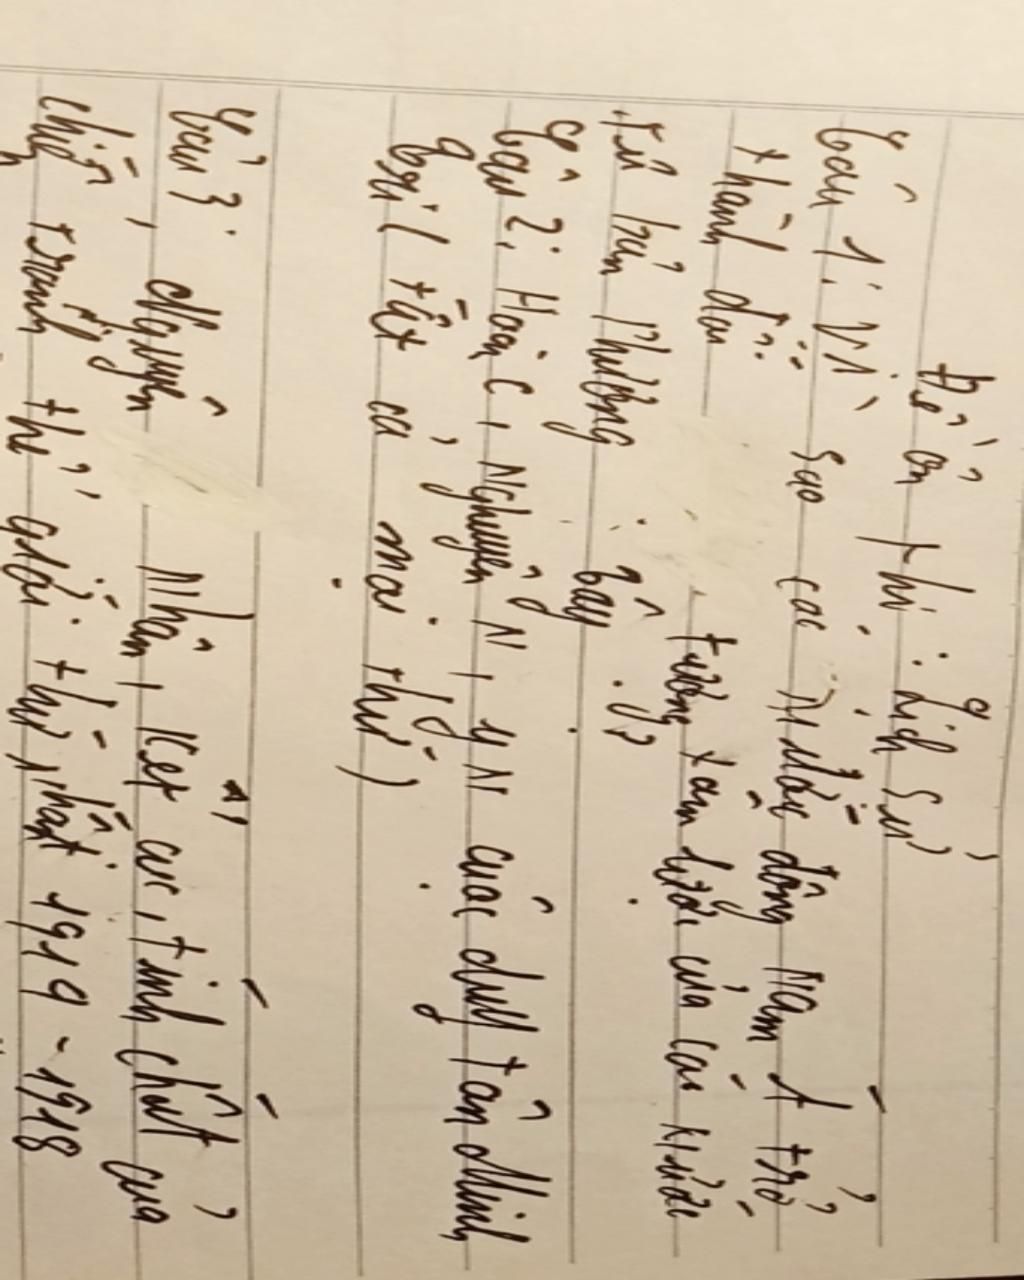 Đề ôn thi: Lịch Sử
Câu 1: Vì sao các nước đông Nam Á trở
thành đối tượng xâm lược của các nước
tư bản Phương Tây?
Câu 2: Hoàn C, Nguyên N, ý N cuộc duy tân Minh
trị (tất cả mọi thứ)
Câu 3: Nguyên Nhân, kết cục, tính chất của
chiến tranh thế giới thứ nhất 1919 - 1918